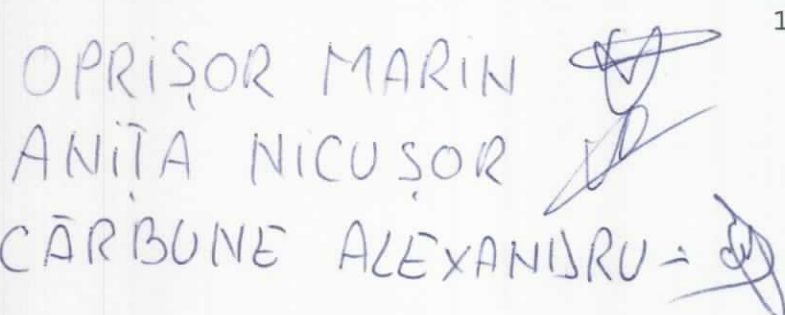 1
OPRIȘOR MARIN
ANIȚA NICUȘOR
CĂRBUNE ALEXANDRU -